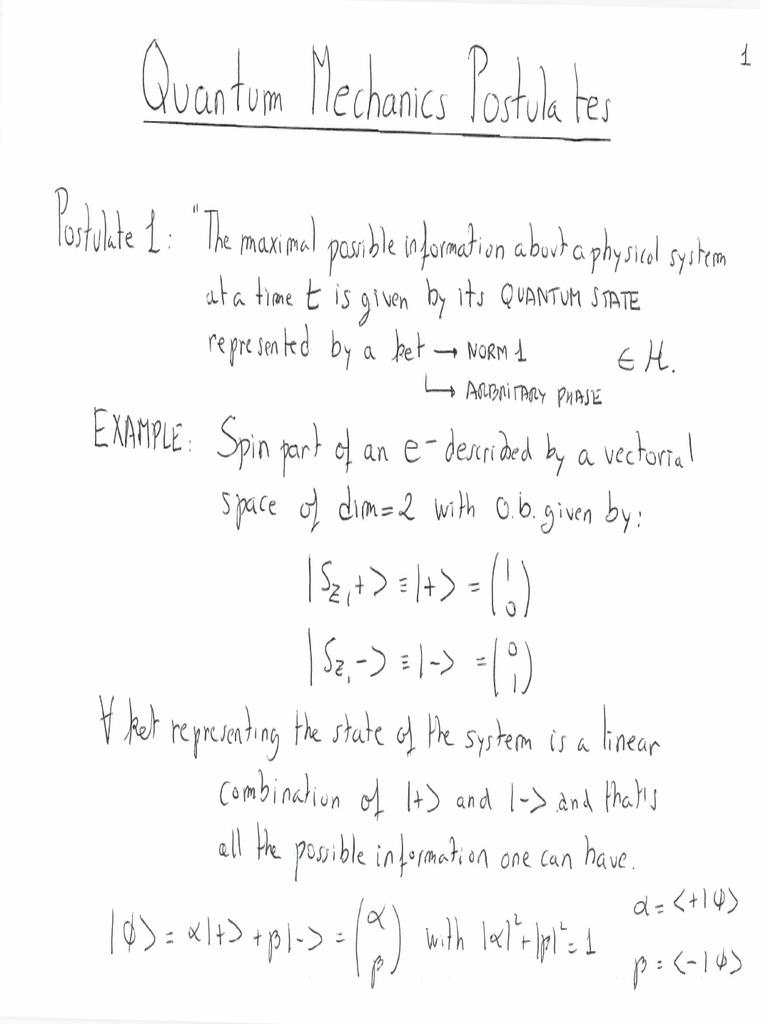 1
Quantum Mechanics Postulates
Postulate 1: "The maximal possible information about a physical system
at a time t is given by its QUANTUM STATE
represented by a ket → NORM 1 ∈ H.
↳ ARBRITARY PHASE
EXAMPLE: Spin part of an e⁻ described by a vectorial
space of dim=2 with o.b. given by:
|S_z,+> ≡ |+> = (1 0)
|S_z,-> ≡ |-> = (0 1)
∀ ket representing the state of the system is a linear
combination of |+> and |-> and that's
all the possible information one can have.
|ϕ> = α|+> + β|-> = (α β) with |α|²+|β|²=1
α = <+|ϕ>
β = <-|ϕ>